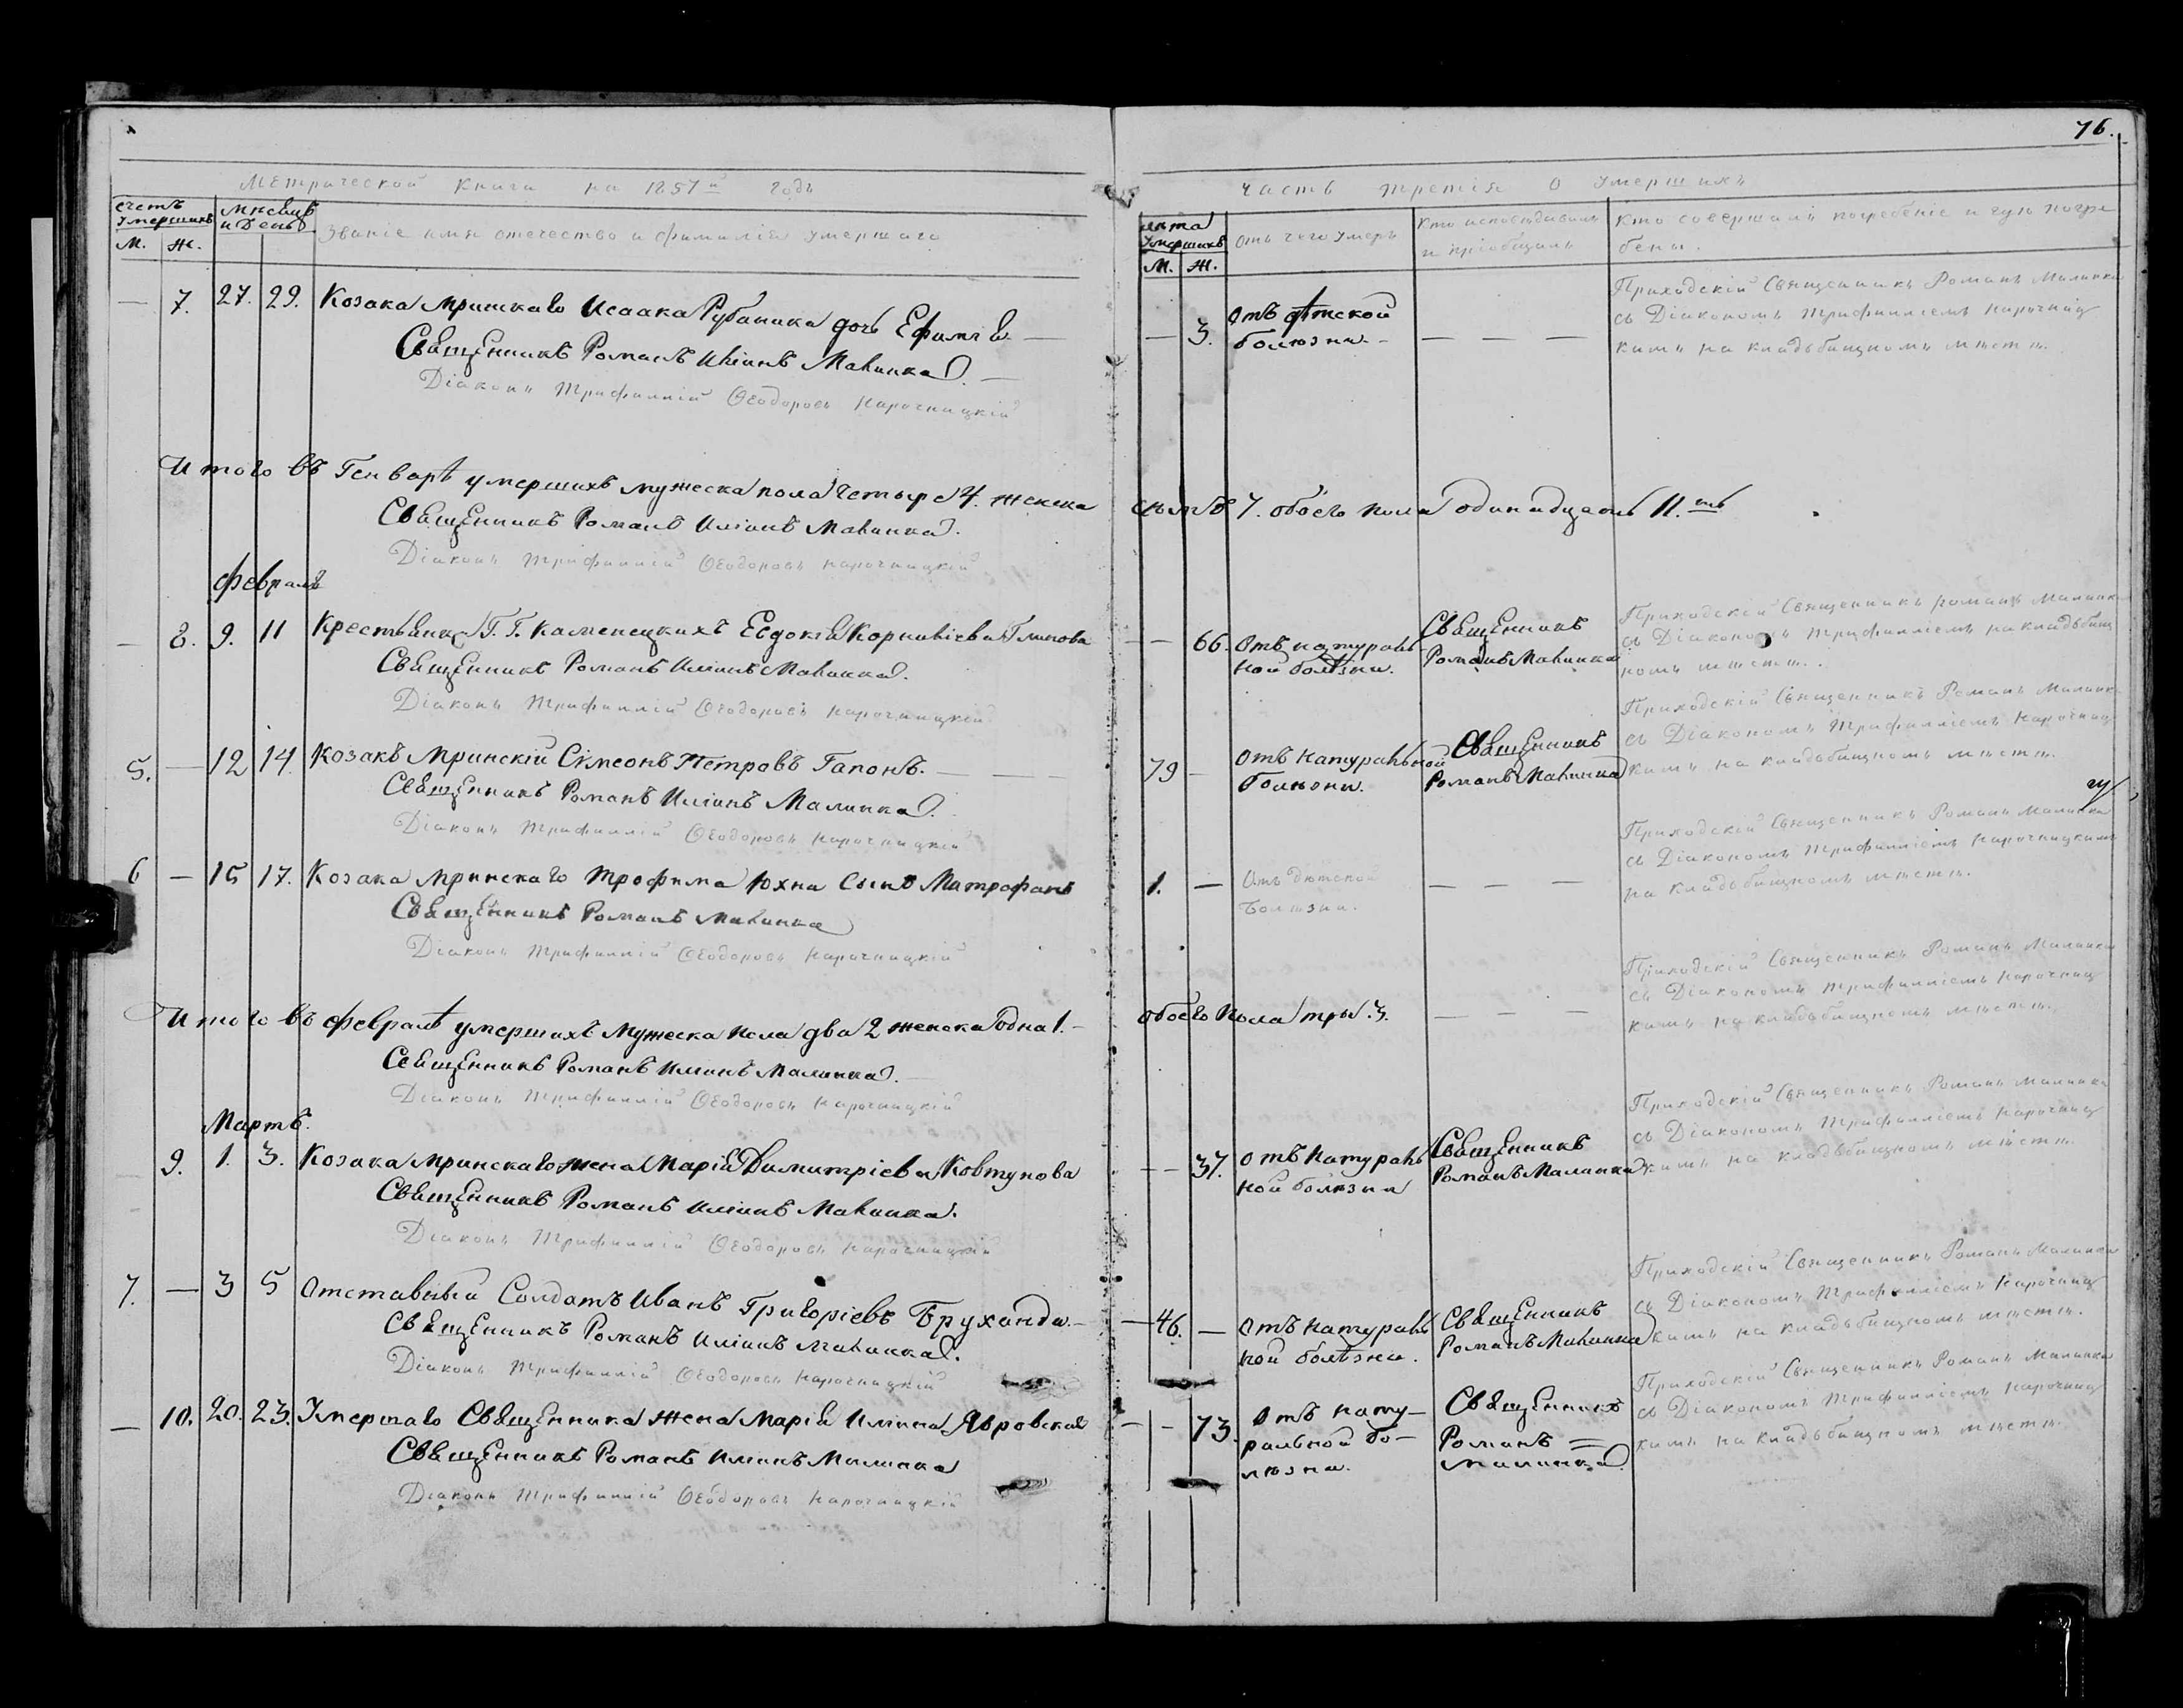 76.
Метрической книги на 1857й годъ
Часть третія о умершихъ
счетъ умершихъ
М. Ж.
мѣсяцъ и день
Званіе имя отечество и фамилія умершаго
лѣта умершихъ
М. Ж.
отъ чего умеръ
кто исповѣдывалъ и пріобщалъ
кто совершалъ погребеніе и гдѣ погре
бены.
— 7. 27. 29. Козака Мринскаго Исаака Рубаника дочь Ефимія. —
Священникъ Романъ Иліинъ Малинка. —
Діаконъ Трифиллій Ѳеодоровъ Нарочницкій
— 3. Отъ дѣтской
болѣзни. — — — —
Приходскій Священникъ Романъ Малинка
съ Діакономъ Трифилліемъ Нарочниц
кимъ на кладьбищномъ мѣстѣ.
Итого въ Генварѣ умершихъ мужеска пола четыре 4. женска
семь 7. обоего пола одинадцать 11.ть
Священникъ Романъ Иліинъ Малинка.
Діаконъ Трифиллій Ѳеодоровъ Нарочницкій
Февраль
— 8. 9. 11 Крестьянка Г. Г. Каменецкихъ Евдокія Корниліева
Священникъ Романъ Иліинъ Малинка.
Діаконъ Трифиллій Ѳеодоровъ Нарочницкій
— 66. Отъ натураль
ной болѣзни.
Священникъ
Романъ Малинка
Приходскій Священникъ Романъ Малинка
съ Діакономъ Трифилліемъ на кладьбищ
номъ мѣстѣ.
5. — 12 14 Козакъ Мринскій Сімеонъ Петровъ Гапонъ. — — —
Священникъ Романъ Иліинъ Малинка.
Діаконъ Трифиллій Ѳеодоровъ Нарочницкій
79 — Отъ натуральной
болѣзни.
Священникъ
Романъ Малинка
Приходскій Священникъ Романъ Малинка
съ Діакономъ Трифилліемъ Нарочниц
кимъ на кладьбищномъ мѣстѣ.
6 — 15 17. Козака Мринскаго Трофима Юхна сынъ Матрофанъ
Священникъ Романъ Малинка
Діаконъ Трифиллій Ѳеодоровъ Нарочницкій
1. — Отъ дѣтской
болѣзни.
— — —
Приходскій Священникъ Романъ Малинка
съ Діакономъ Трифилліемъ Нарочницкимъ
на кладьбищномъ мѣстѣ.
Итого въ Февралѣ умершихъ мужеска пола два 2 женска одна 1. —
обоего пола три 3. — — —
Приходскій Священникъ Романъ Малинка
съ Діакономъ Трифилліемъ Нарочниц
кимъ на кладьбищномъ мѣстѣ.
Священникъ Романъ Иліинъ Малинка. —
Діаконъ Трифиллій Ѳеодоровъ Нарочницкій
Мартъ.
9. 1. 3. Козака Мринскаго жена Марія Димитріева Ковтунова
Священникъ Романъ Иліинъ Малинка.
Діаконъ Трифиллій Ѳеодоровъ Нарочницкій
— — 37. Отъ натураль
ной болѣзни
Священникъ
Романъ Малинка
Приходскій Священникъ Романъ Малинка
съ Діакономъ Трифилліемъ Нарочниц
кимъ на кладьбищномъ мѣстѣ.
7. — 3 5 Отставный Солдатъ Иванъ Григоріевъ Бруханда. —
Священникъ Романъ Иліинъ Малинка.
Діаконъ Трифиллій Ѳеодоровъ Нарочницкій
— 46. — Отъ натураль
ной болѣзни.
Священникъ
Романъ Малинка
Приходскій Священникъ Романъ Малинка
съ Діакономъ Трифилліемъ Нарочниц
кимъ на кладьбищномъ мѣстѣ.
— 10. 20. 23. Умершаго Священника жена Марія Илина Явровская
Священникъ Романъ Илинъ Малинка
Діаконъ Трифиллій Ѳеодоровъ Нарочницкій
— — 73. Отъ нату—
ральной бо—
лѣзни.
Священникъ
Романъ =
Малинка.
Приходскій Священникъ Романъ Малинка
съ Діакономъ Трифилліемъ Нарочниц
кимъ на кладьбищномъ мѣстѣ.